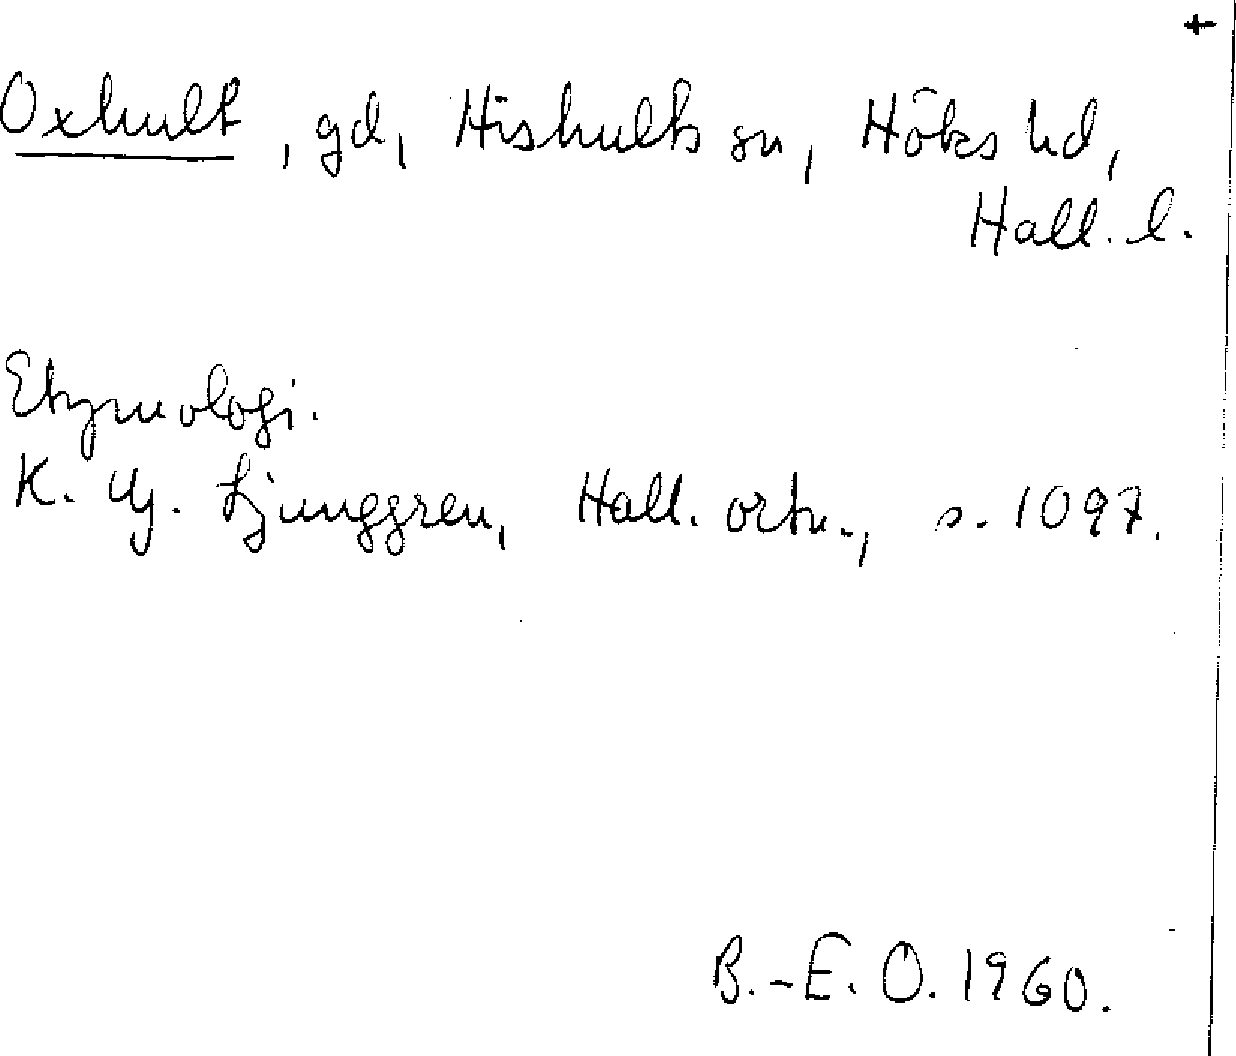 Oxhult, gd, Hishults sn, Höks hd,
Hall. l.
Etymologi.
K. G. Ljunggren, Hall. ortn., s. 1097.
B.-E. O. 1960.